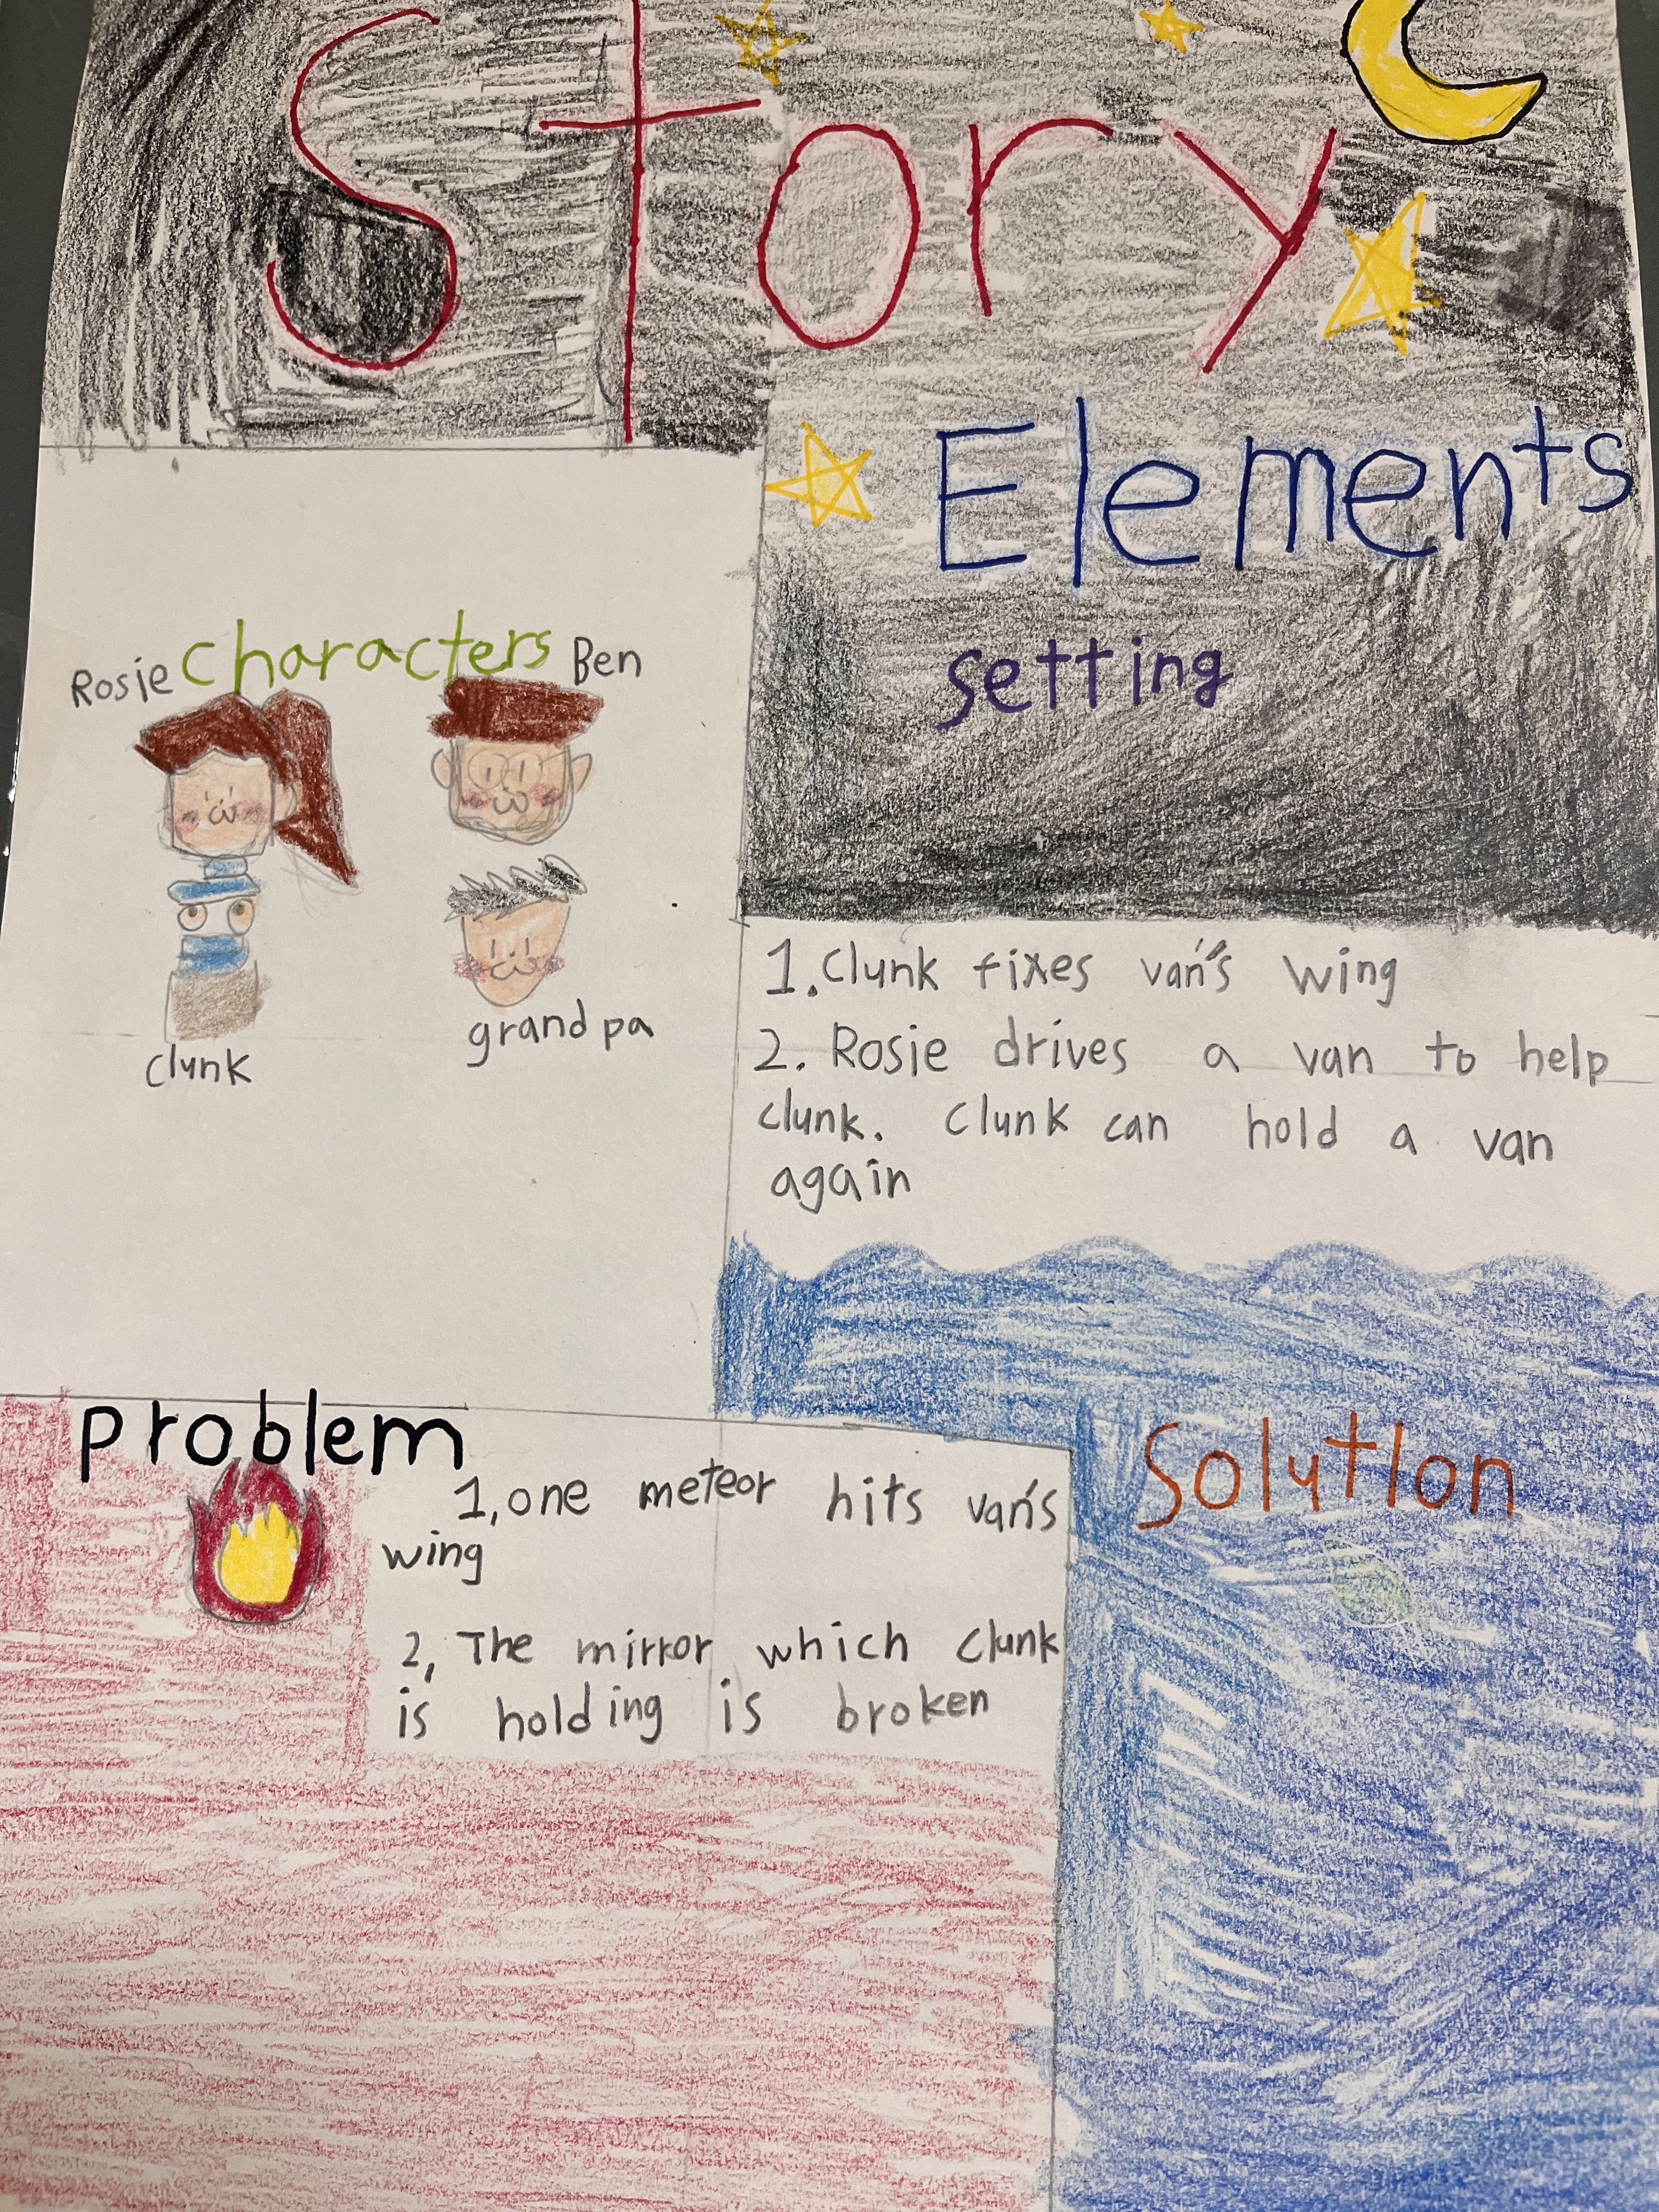 Story
Elements
setting
characters
Rosie
Ben
clunk
grandpa
1. Clunk fixes van's wing
2. Rosie drives a van to help
clunk. Clunk can hold a van
again
problem
1, one meteor hits van's
wing
2, The mirror which clunk
is holding is broken
Solution